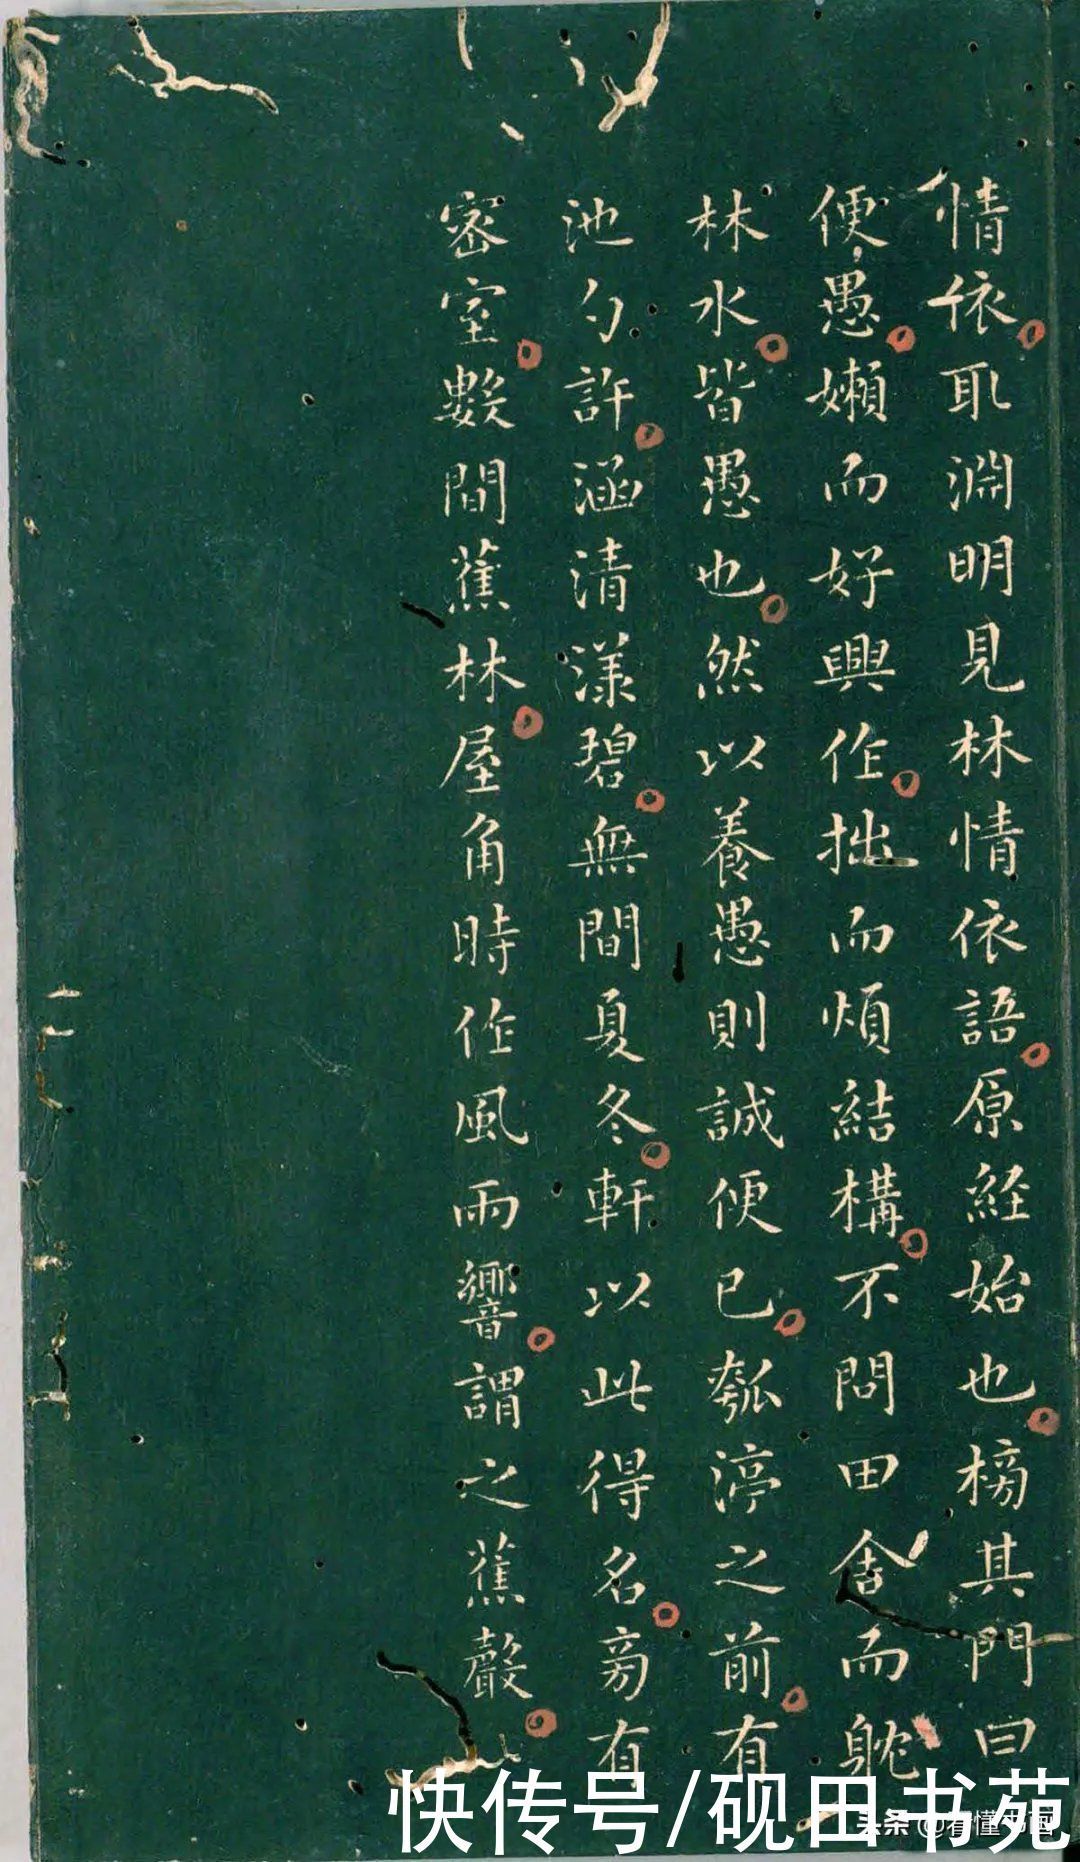 情依耴淵明見林情依語原経始也榜其門曰
便愚嬾而好興作拙而煩結構不問田舍而躭
林水皆愚也然以養愚則誠便已瓠渟之前有
池勺許涵清漾碧無間夏冬軒以此得名旁有
密室數間蕉林屋角時作風雨響謂之蕉聲
快传号/砚田书苑
头条@看懂书画